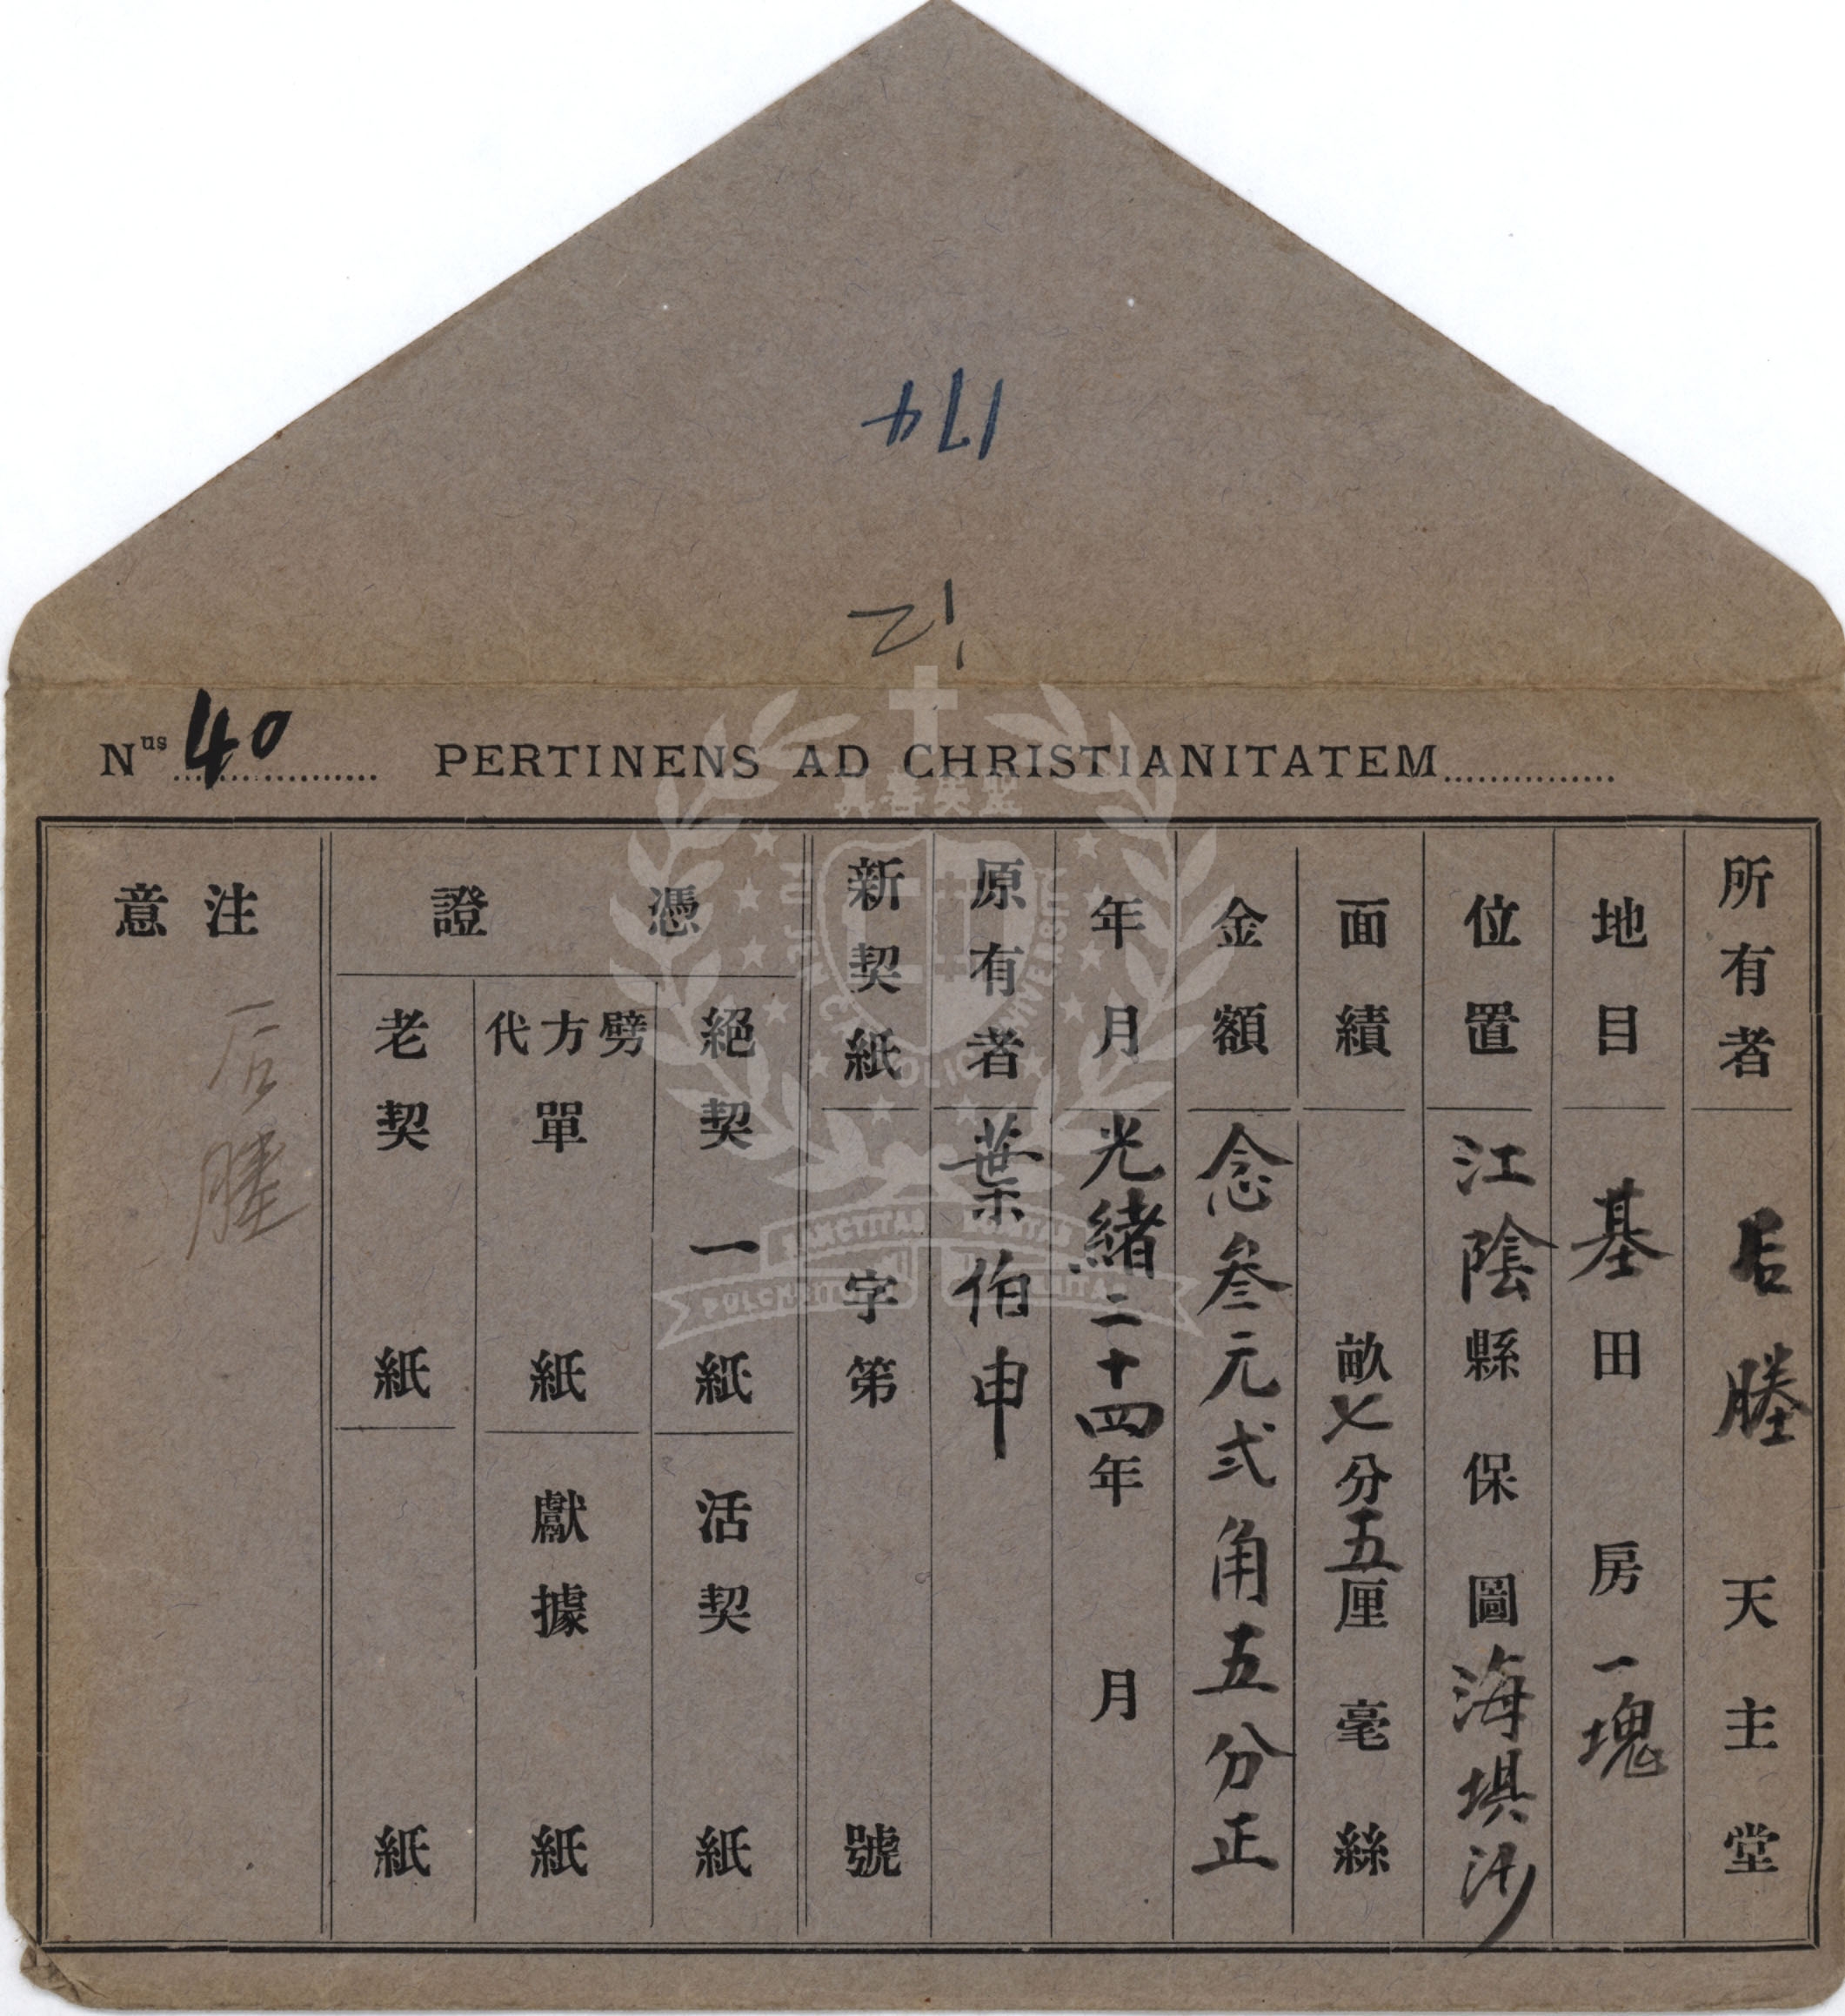 174
12
Nus 40 PERTINENS AD CHRISTIANITATEM
所有者 后塍天主堂
地目 基田 房一塊
位置 江陰縣 保 圖海埧沙
面績 畝七分五厘 毫 絲
金額 念叁元弍角五分正
年月 光緒二十四年 月
原有者 葉伯申
新契紙 字第 號
憑證
絕契 一紙 活契 紙
劈方代單 紙 獻據 紙
老契 紙 紙
注意
后塍